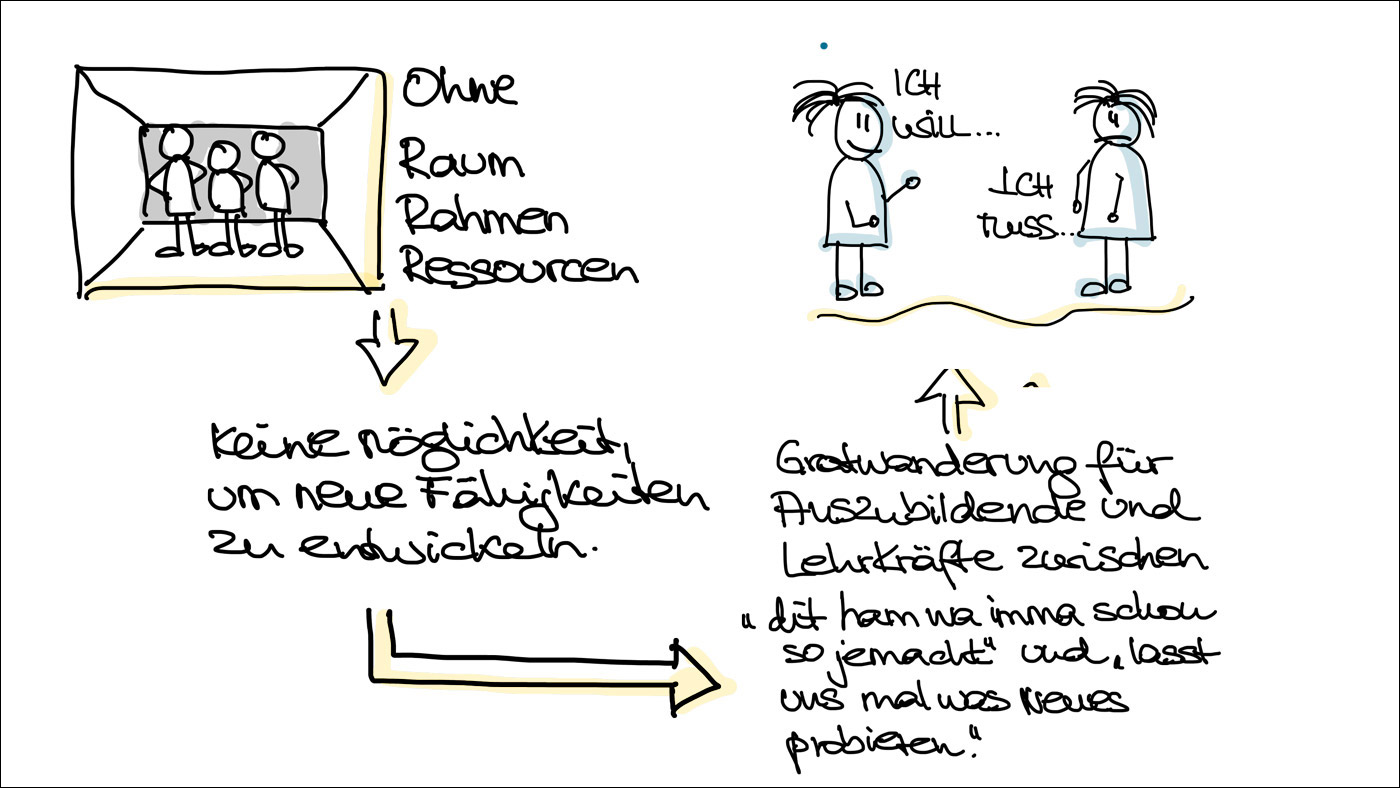 Ohne
Raum
Rahmen
Ressourcen
Keine Möglichkeit,
um neue Fähigkeiten
zu entwickeln.
ICH
will...
ICH
muss...
Gratwanderung für
Auszubildende und
Lehrkräfte zwischen
„dit ham wa imma schon
so jemacht“ und „lasst
uns mal was Neues
probieren.“